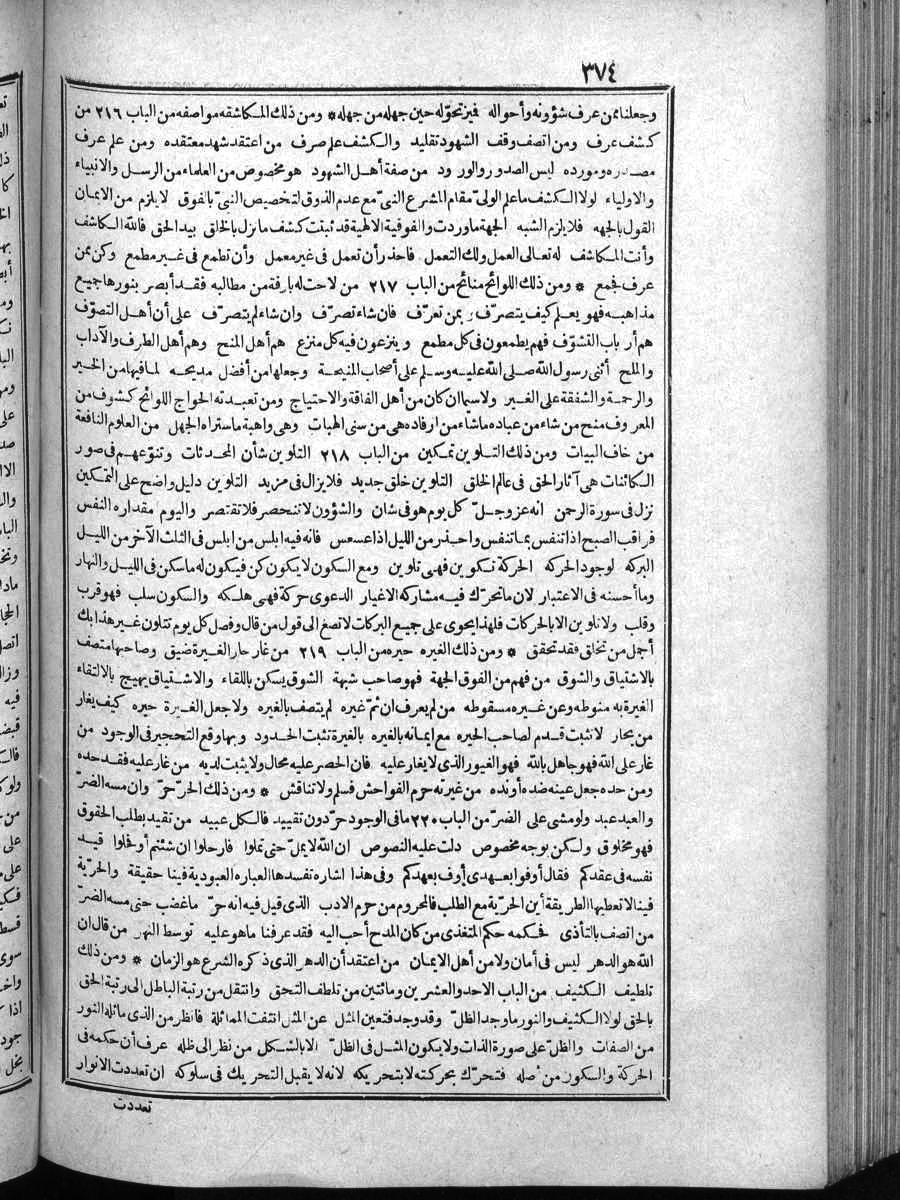 ٣٧٤
وجعلنا ممن عرف شؤونه وأحواله فيز تحوّله حين جهله من جهله * ومن ذلك المكاشفه مواصفه من الباب ٢١٦ من
كشف عرف ومن اتصف وقف الشهود تقليد والكشف علم صرف من اعتقد شهد معتقده ومن علم عرف
مصدره ومورده ليس الصدور والورود من صفة أهل الشهود هو مخصوص من العلماء من الرسل والانبياء
والاولياء لولا الكشف ما علم الولىّ مقام المشرع النبىّ مع عدم الذوق لتخصيص النبىّ بالفوق لا يلزم من الايمان
القول بالجهه فلا يلزم الشبه الجهة ما وردت والفوقية الالهية قد ثبتت كشف ما نزل بالخلق بيد الحق فالله الكاشف
وأنت المكاشف له تعالى العمل ولك التعمل فاحذر أن تعمل فى غير معمل وأن تطمع فى غير مطمع وكن ممن
عرف فجمع * ومن ذلك اللوائح منائح من الباب ٢١٧ من لاحت له بارقة من مطالبه فقد أبصر بنورها جميع
مذاهبه فهو يعلم كيف يتصرّف وبمن تعرّف فان شاء تصرّف وان شاء لم يتصرّف على أن أهل التصوّف
هم أرباب التشوّف فهم يطمعون فى كل مطمع وينزعون فيه كل منزع هم أهل المنح وهم أهل الطرف والآداب
والملح أثنى رسول الله صلى الله عليه وسلم على أصحاب المنيحة وجعلها من أفضل مديحه لما فيها من الخير
والرحمة والشفقة على الغير ولا سيما ان كان من أهل الفاقة والاحتياج ومن تعبدته الحواج اللوائح كشوف من
المعروف منح من شاء من عباده ما شاء من ارفاده هى من سنى الهبات وهى واهبة ما ستراه الجهل من العلوم النافعة
من خاف البيات ومن ذلك التلوين تمكين من الباب ٢١٨ التلوين شأن المحدثات وتنوّعهم فى صور
الكائنات هى آثار الحق فى عالم الخلق التلوين خلق جديد فلا يزال فى مزيد التلوين دليل واضح على التمكين
نزل فى سورة الرحمن انه عز وجلّ كل يوم هو فى شان والشؤون لا تنحصر فلا تقتصر واليوم مقداره النفس
فراقب الصبح اذا تنفس بما تنفس واحذر من الليل اذا عسعس فانه فيه ابلس من ابلس فى الثلث الآخر من الليل
البركه لوجود الحركه الحركة تكوين فهى تلوين ومع السكون لا يكون كن فيكون له ما سكن فى الليل والنهار
وما أحسنه فى الاعتبار لان ما تحرّك فيه مشاركه الاغيار الدعوى حركة فهى هلكه والسكون سلب فهو قرب
وقلب ولا تلوين الا بالحركات فلهذا يحوى على جميع البركات لا تصغ الى قول من قال وفصل كل يوم تتلون غير هذا بك
أجمل من تخلق فقد تحقق * ومن ذلك الغيره حيره من الباب ٢١٩ من غار حار الغيرة ضيق وصاحبها متصف
بالاشتياق والشوق من فهم من الفوق الجهة فهو صاحب شبهة الشوق يسكن باللقاء والاشتياق يهيج بالالتقاء
الغيرة به منوطه وعن غيره مسقوطه من لم يعرف ان ثمّ غيره لم يتصف بالغيره ولا جعل الغيرة حيره كيف يغار
من يحار لا تثبت قدم لصاحب الحيره مع ايمانه بالغيره بالغيرة تثبت الحدود وبها وقع التحجير فى الوجود من
غار على الله فهو جاهل بالله فهو الغيور الذى لا يغار عليه فان الحصر عليه محال ولا يثبت لديه من غار عليه فقد حده
ومن حده جعل عينه ضده أو نده من غيرته حرم الفواحش فسلم ولا تناقش * ومن ذلك الحرّ حرّ وان مسه الضرّ
والعبد عبد ولو مشى على الضرّ من الباب ٢٢٠ ما فى الوجود حرّ دون تقييد فالكل عبيد من تقيد بطلب الحقوق
فهو مخلوق ولكن بوجه مخصوص دلت عليه النصوص ان الله لا يملّ حتى تملوا فارحلوا ان شئتم أو فحلوا قيد
نفسه فى عقدكم فقال أوفوا بعهدى أوف بعهدكم وفى هذا اشاره تفسدها العباره العبودية فينا حقيقة والحرّية
فينا لا تعطيها الطريقة أين الحرّية مع الطلب فالمحروم من حرم الادب الذى قيل فيه انه حرّ ما غضب حتى مسه الضرّ
من اتصف بالتأذى فحكمه حكم المتغذى من كان المدح أحب اليه فقد عرفنا ما هو عليه توسط النهر من قال ان
الله هو الدهر ليس فى أمان ولا من أهل الايمان من اعتقد أن الدهر الذى ذكره الشرع هو الزمان * ومن ذلك
تلطيف الكثيف من الباب الاحد والعشرين ومائتين من تلطف التحق وانتقل من رتبة الباطل الى رتبة الحق
بالحق لولا الكثيف والنور ما وجد الظلّ وقد وجد فتعين المثل عن المثل انتفت المماثلة فانظر من الذى ماثله النور
من الصفات والظلّ على صورة الذات ولا يكون المثل فى الظلّ الا بالشكل من نظر الى ظله عرف أن حكمه فى
الحركة والسكون من أصله فتحرّك بحركته لا بتحريكه لانه لا يقبل التحريك فى سلوكه ان تعددت الانوار
تعددت